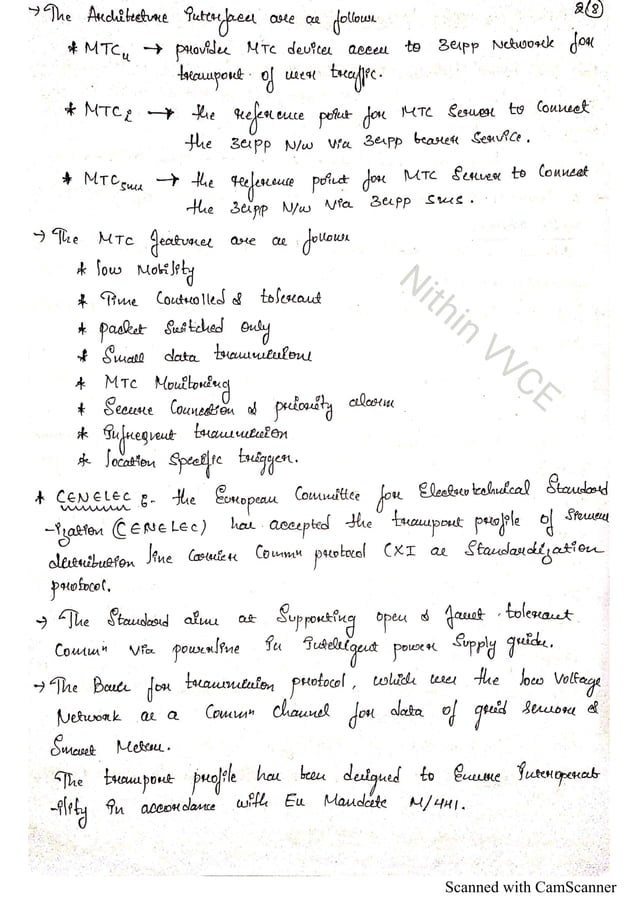 2(8)
→ The Architecture Interfaces are as follows
* MTCu → provides MTC devices access to 3GPP Network for
transport of user traffic.
* MTCi → the reference point for MTC Server to Connect
the 3GPP N/w via 3GPP bearer Service.
* MTCsms → the reference point for MTC Server to Connect
the 3GPP N/w Via 3GPP SMS.
→ The MTC features are as follows
* low Mobility
* Time Controlled & tolerant
* packet Switched Only
* Small data transmissions
* MTC Monitoring
* Secure Connection & priority alarm
* Infrequent transmission
* location Specific trigger.
Nithin VVCE
* CENELEC :- the European Committee for Electrotechnical Standard
-ization (CENELEC) has accepted the transport profile of Siemens
distribution line Carrier Commn protocol CX1 as Standardization
protocol.
→ The Standard aims at Supporting open & fault-tolerant
Commn Via powerline in Intelligent power Supply grids.
→ The Basis for transmission protocol, which uses the low Voltage
Network as a Commn Channel for data of grid sensors &
Smart Meters.
The transport profile has been designed to Ensure Interoperab
-ility In accordance with EU Mandate M/441.
Scanned with CamScanner